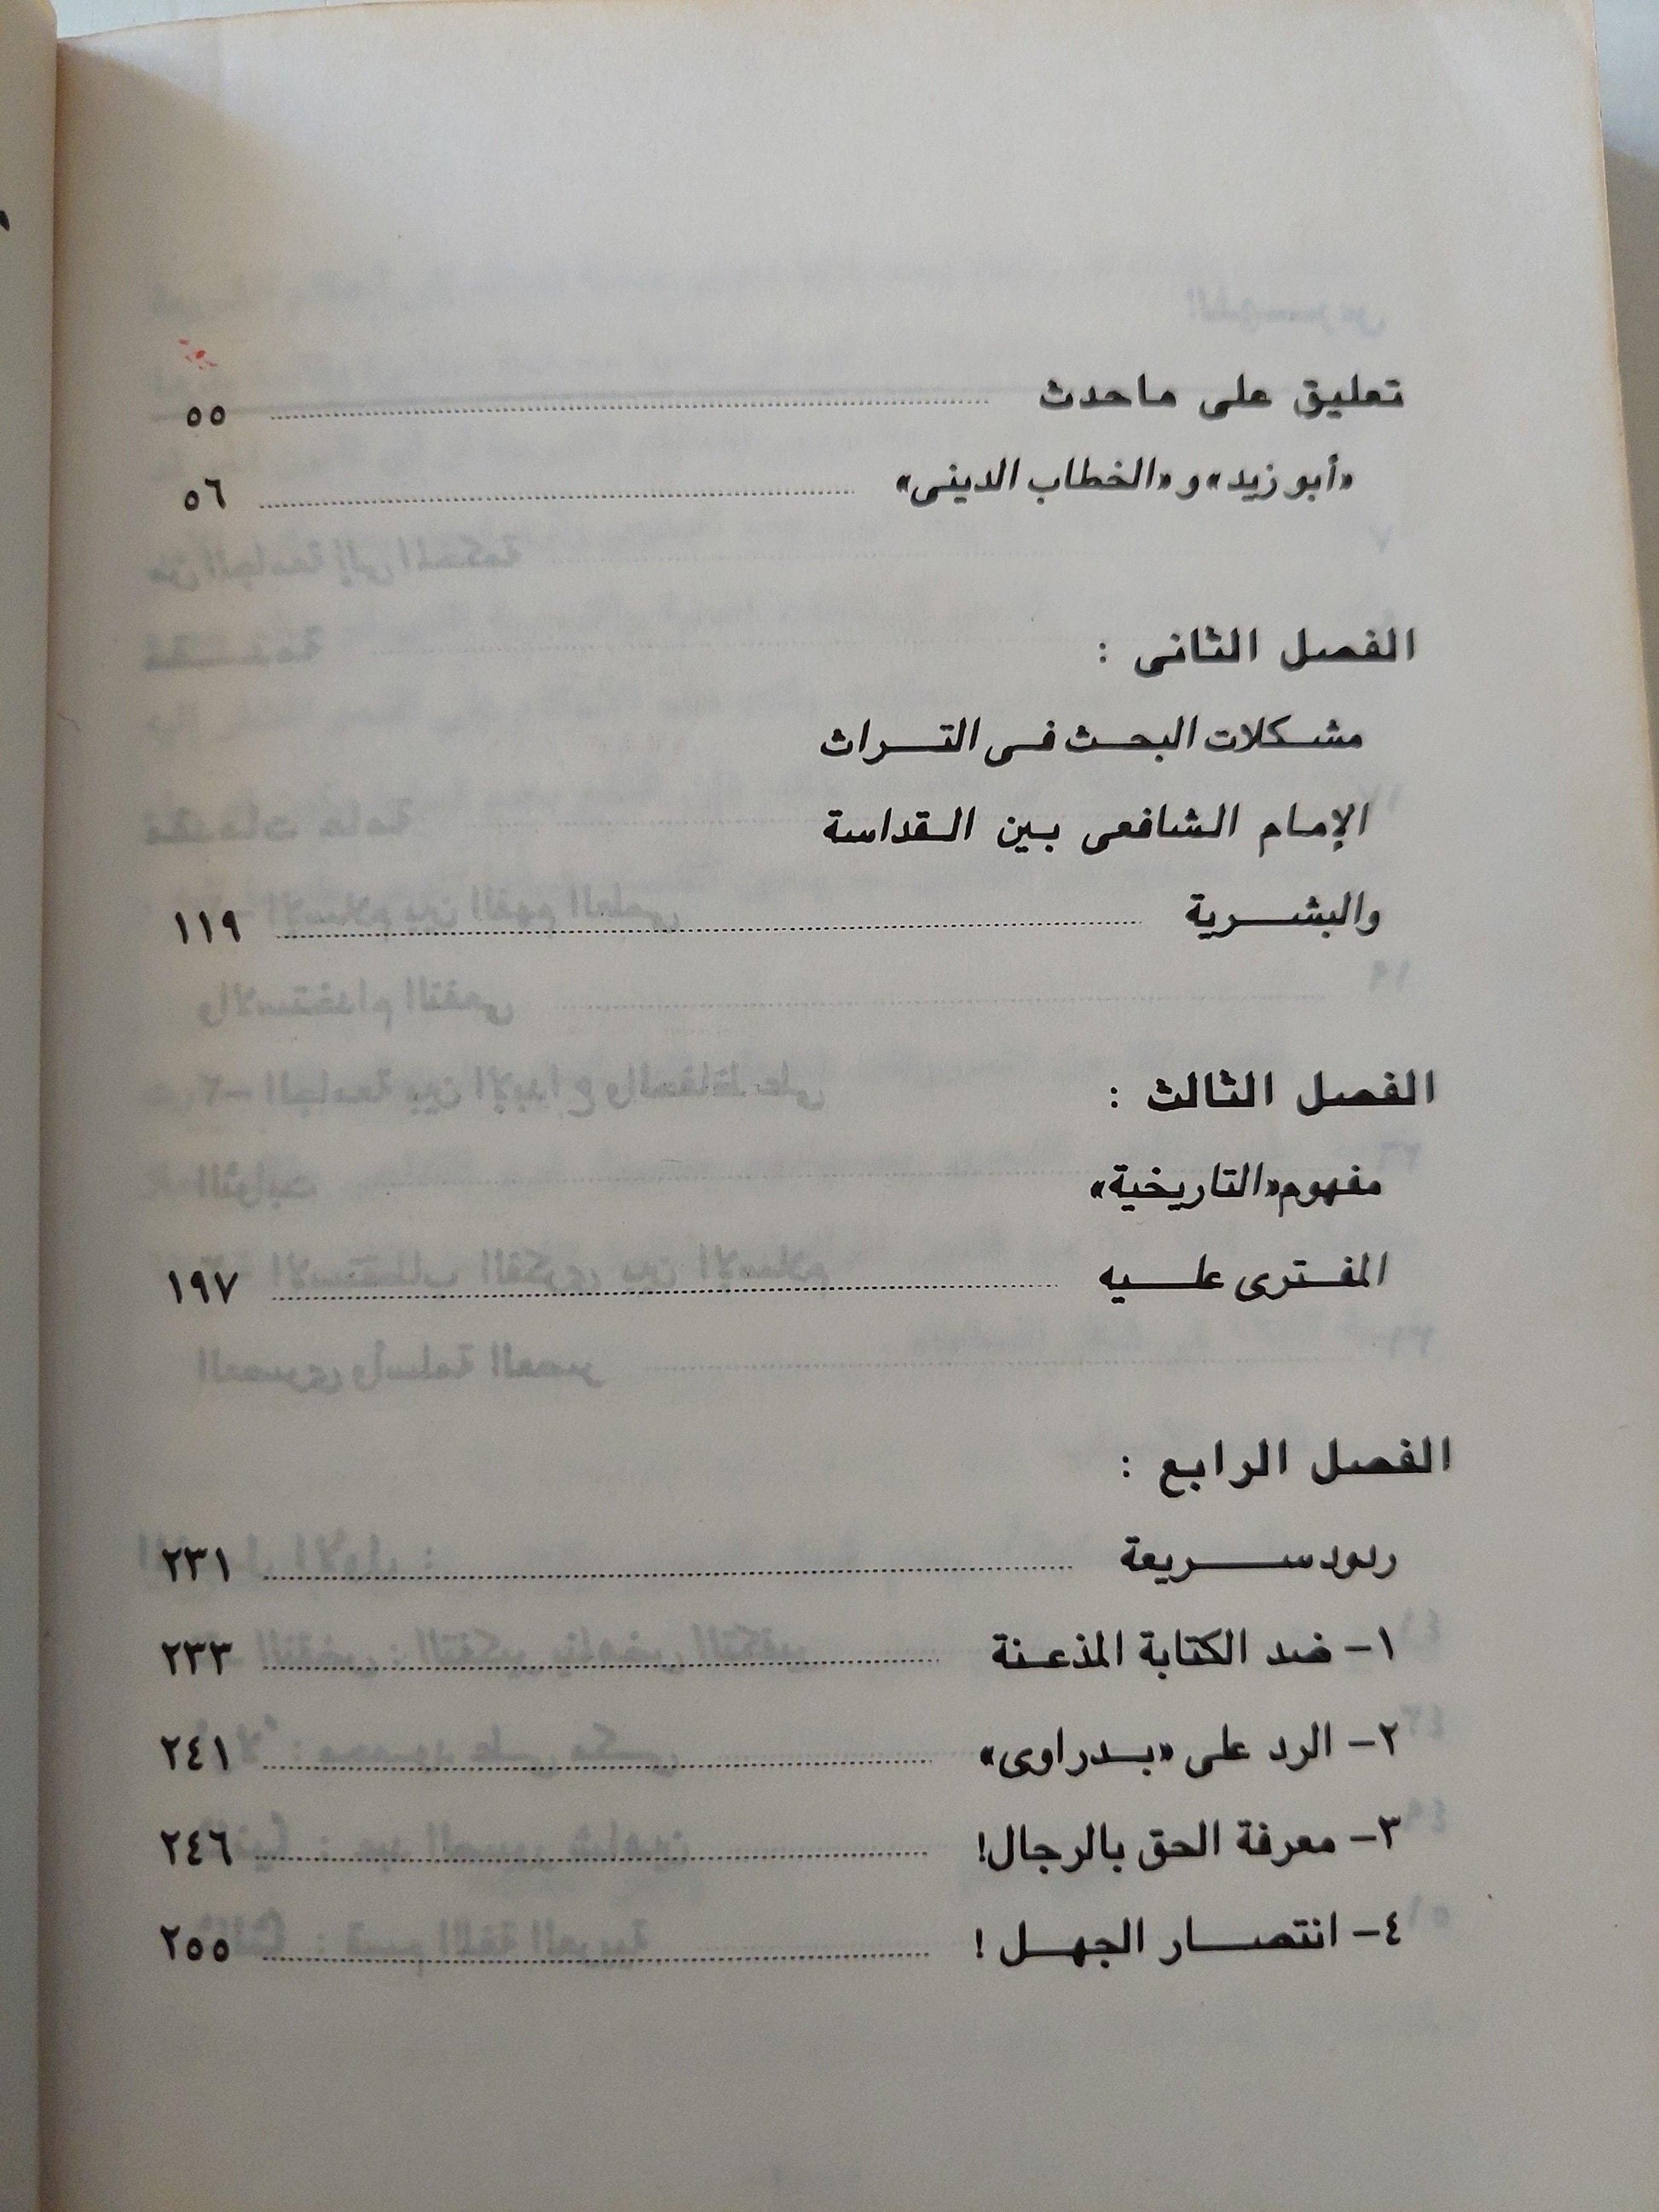 تعليق على ماحدث ٥٥
«أبو زيد» و «الخطاب الدينى» ٥٦
الفصل الثانى :
مشكلات البحث فى التراث
الإمام الشافعى بين القداسة
والبشرية ١١٩
الفصل الثالث :
مفهوم «التاريخية»
المفترى عليه ١٩٧
الفصل الرابع :
ردود سريعة ٢٣١
١- ضد الكتابة المذعنة ٢٣٣
٢- الرد على «بدراوى» ٢٤١
٣- معرفة الحق بالرجال! ٢٤٦
٤- انتصار الجهل ! ٢٥٥